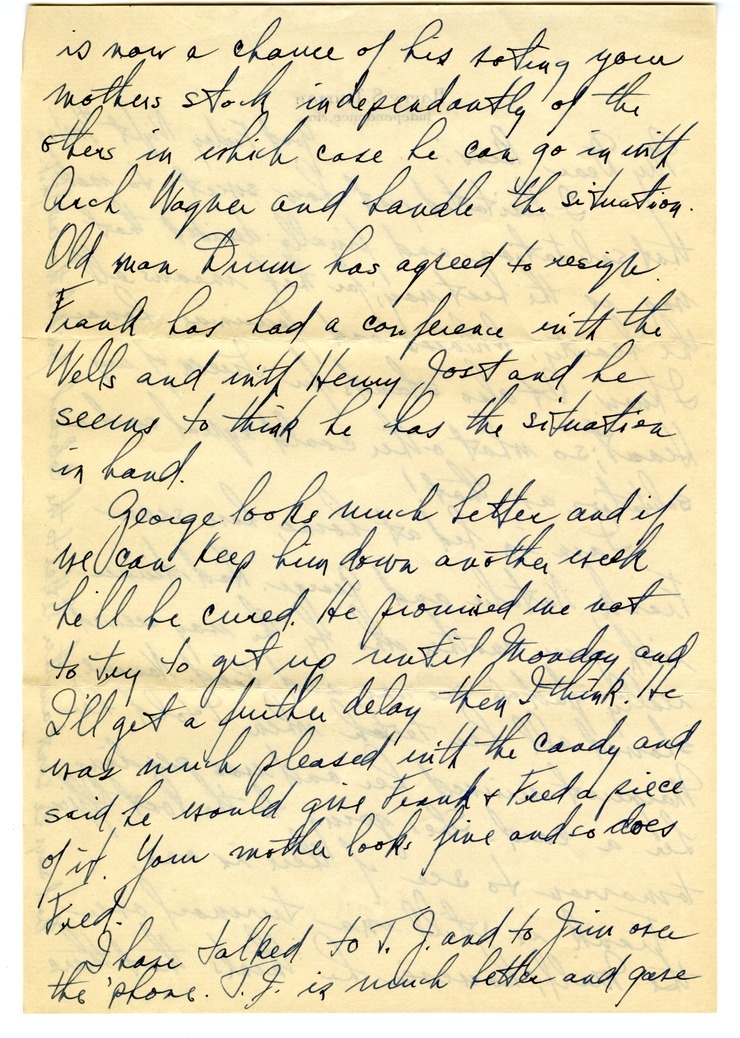 is now a chance of his voting your
mothers stock independantly of the
others in which case he can go in with
Arch Wagner and handle the situation.
Old man Drum has agreed to resign.
Frank has had a conference with the
Wells and with Henry Jost and he
seems to think he has the situation
in hand.
George looks much better and if
we can keep him down another week
he'll be cured. He promised me not
to try to get up until Monday and
I'll get a further delay then I think. He
was much pleased with the candy and
said he would give Frank & Fred a piece
of it. Your mother looks fine and so does
Fred.
I have talked to T. J. and to Jim over
the 'phone. T. J. is much better and gave